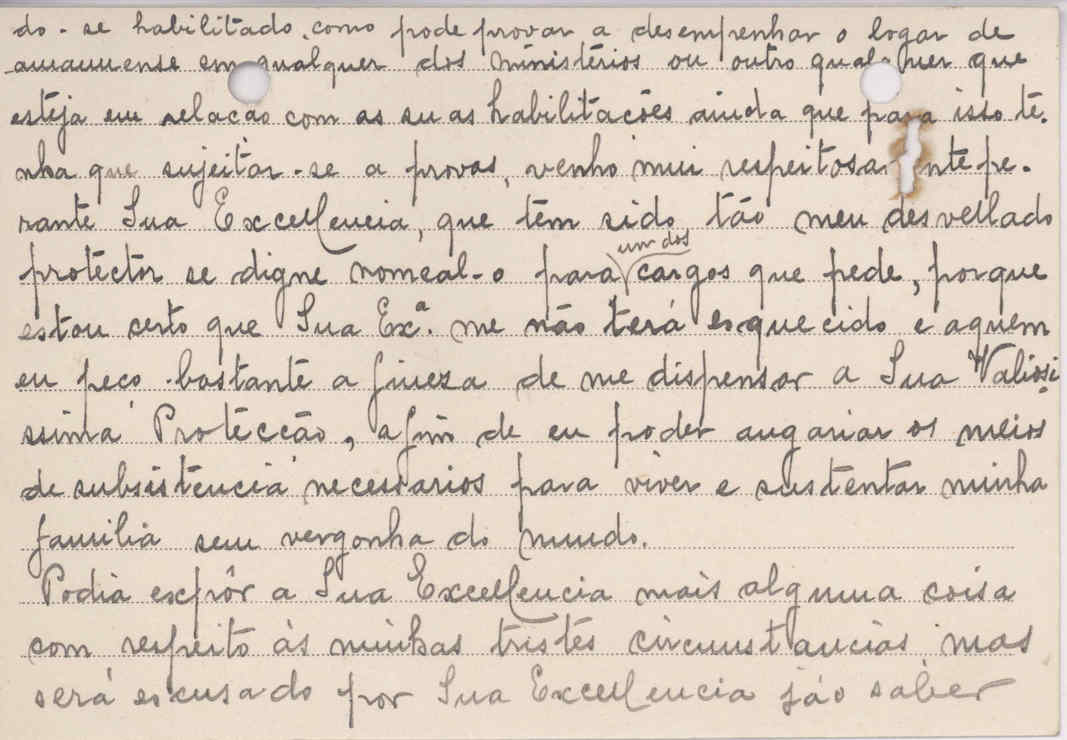 do-se habilitado, como pode provar a desempenhar o logar de
amanuense em qualquer dos ministérios ou outro qualquer que
esteja em relação com as suas habilitações ainda que para isso te-
nha que sujeitar-se a provas, venho mui respeitosamente pe-
rante Sua Excellencia, que têm sido tão meu desvellado
protector se digne nomeal-o para um dos cargos que pede, porque
estou certo que Sua Exª. me não terá esquecido e aquem
eu peço bastante a fineza de me dispensar a Sua Valiosi
ssima Protecção, afim de eu poder angariar os meios
de subsistencia necessarios para viver e sustentar minha
familia sem vergonha do mundo.
Podia expôr a Sua Excellencia mais alguma coisa
com respeito ás minhas tristes circumstancias mas
será escusado por Sua Excellencia jáo saber